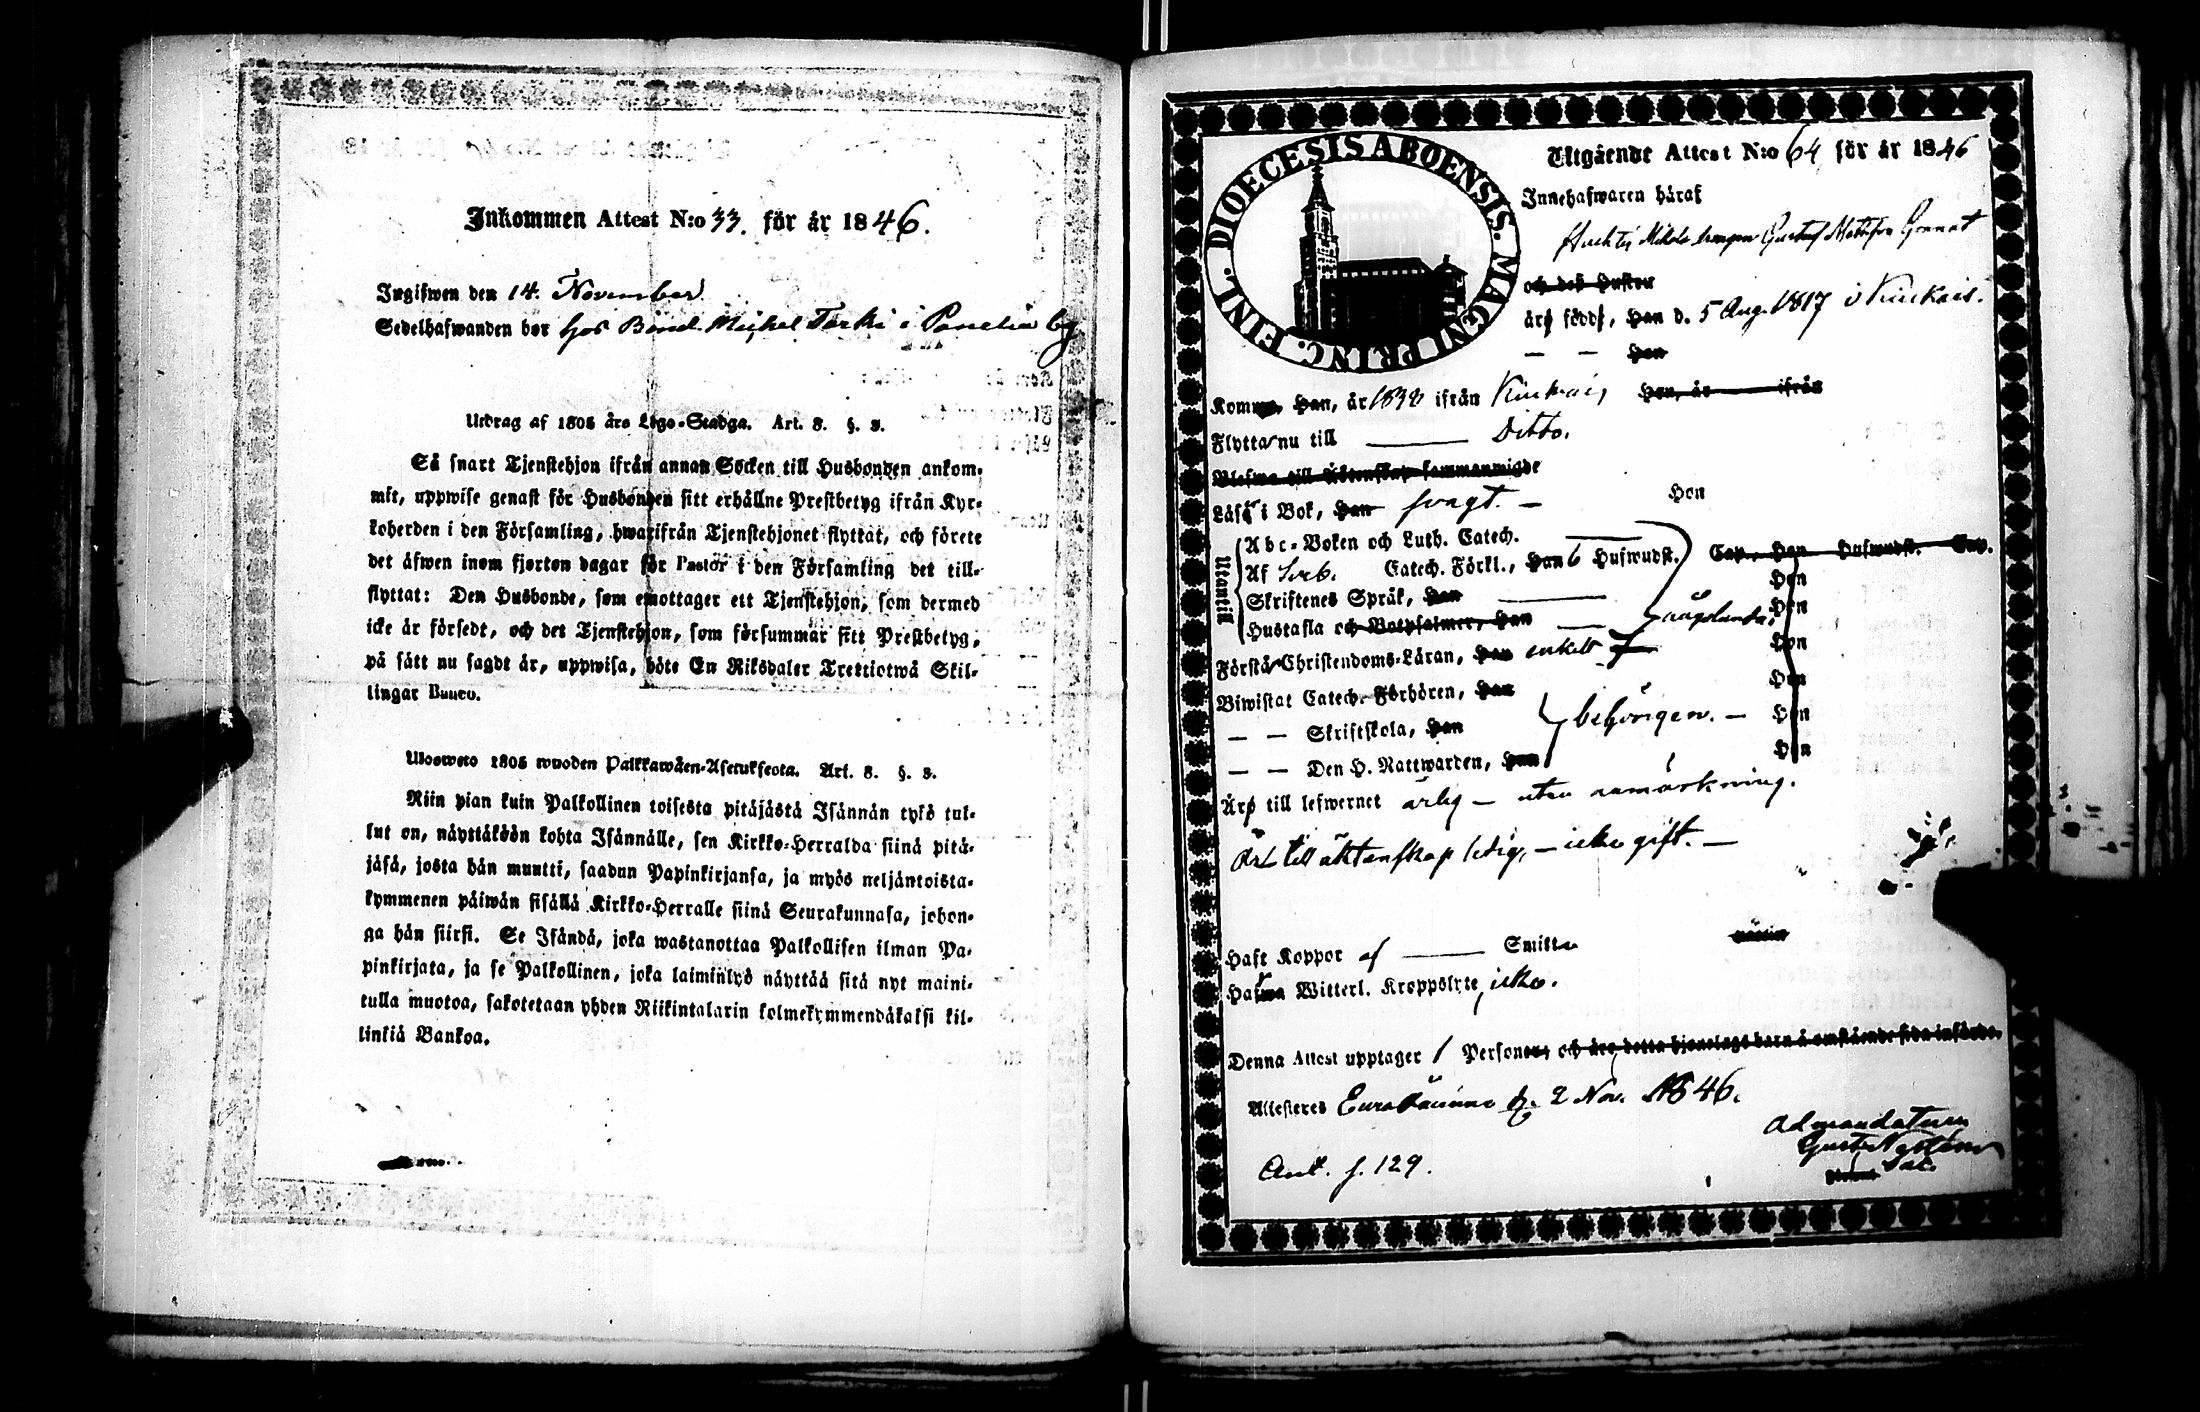 Inkommen Attest N:o 33. för år 1846.
Ingifwen den 14. November
Sedelhafwanden bor hos Bond. Michel Torki i Panelia by
Utdrag af 1805 års Lego-Stadga. Art. 8. §. 3.
Så snart Tjenstehjon ifrån annan Socken till Husbonden ankom-
mit, uppwise genast för Husbonden sitt erhållne Prestbetyg ifrån Kyr-
koherden i den Församling, hwarifrån Tjenstehjonet flyttat, och förete
det äfwen inom fjorton dagar för Pastor i den Församling det till-
flyttat: Den Husbonde, som emottager ett Tjenstehjon, som dermed
icke är försedt, och det Tjenstehjon, som försummar sitt Prestbetyg,
på sätt nu sagdt är, uppwisa, böte En Riksdaler Trettiotwå Skil-
lingar Banco.
Ulosweto 1805 wuoden Palkkawäen-Asetuksesta. Art. 8. §. 3.
Niin pian kuin Palkollinen toisesta pitäjästä Isännän tykö tul-
lut on, näyttäköön kohta Isännälle, sen Kirkko-Herralda siinä pitä-
jäsä, josta hän muutti, saadun Papinkirjansa, ja myös neljäntoista-
kymmenen päiwän sisällä Kirkko-Herralle siinä Seurakunnasa, johon-
ga hän siirsi. Se Isändä, joka wastanottaa Palkollisen ilman Pa-
pinkirjata, ja se Palkollinen, joka laiminlyö näyttää sitä nyt maini-
tulla muotoa, sakotetaan yhden Riikintalarin kolmekymmendäkaksi kil-
linkiä Bankoa.
DIOECESIS ABOENSIS. MAGNI PRINC. FINL.
Utgående Attest N:o 64 för år 1846
Innehafwaren häraf
Mikola drengen Gustaf Mattsson Granat
och des Hustru
äro födde, Han d. 5 Aug. 1817 i Kiukais.
— — Hon
Komne, Han, år 1838 ifrån Kiukais Hon, år ifrån
Flytta nu till Ditto.
Blefwo till Äktenskap sammanwigde
Läsa i Bok, Han swagt. — Hon
Utantill
Abc-Boken och Luth. Catech.
Af Catech. Förkl., Han 6 Hufwudst. Cap. Hon Hufwudst. Cap.
Skriftenes Språk, Han Hon
Hustafla och Botpsalmer, Han Hon
Förstå Christendoms-Läran, Han enkelt Hon
Biwistat Catech. Förhören, Han Hon
— — Skriftskola, Han behörigen. — Hon
— — Den H. Nattwarden, Han Hon
Äro till lefwernet ärlig — utan anmärkning.
är till äktenskap ledig, — icke gift. —
Haft Koppor af Smitta
Hafwa Witterl. Kroppslyte, icke.
Denna Attest upptager 1 Personer och äro detta hjonelags barn å omstående sida införde.
Attesteras Eura d. 2 Nov. 1846.
Ad mandatum
Sac.
f. 129.